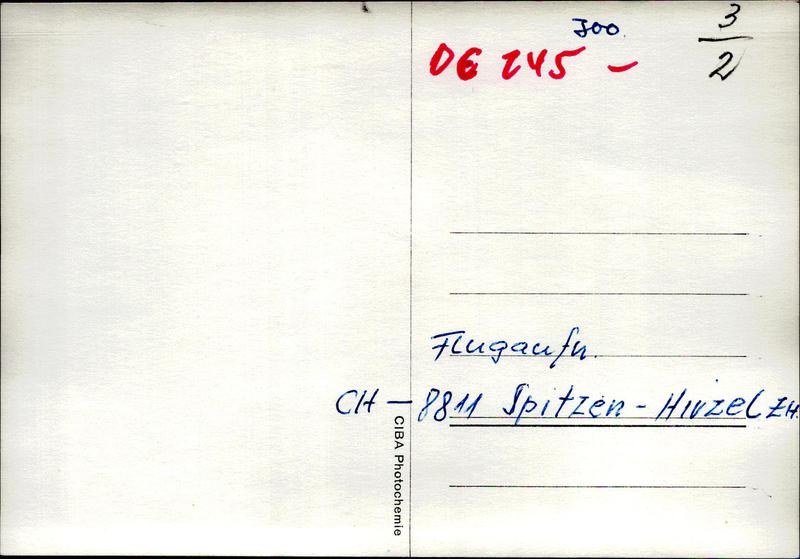 300.
3/2
DE 245 -
Flugaufn.
CH - 8811 Spitzen - Hirzel ZH.
CIBA Photochemie